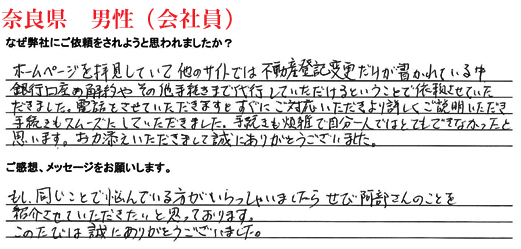 奈良県 男性（会社員）
なぜ弊社にご依頼をされようと思われましたか？
ホームページを拝見していて他のサイトでは不動産登記変更だけが書かれている中
銀行口座の解約やその他手続きまで代行していただけるということで依頼させていた
だきました。電話もさせていただきますとすぐにご対応いただきより詳しくご説明いただき
手続きもスムーズにしていただきました。手続きも煩雑で自分一人ではとてもできなかったと
思います。お力添えいただきまして誠にありがとうございました。
ご感想、メッセージをお願いします。
もし、同じことで悩んでいる方がいらっしゃいましたらぜひ阿部さんのことを
紹介させていただきたいと思っております。
このたびは誠にありがとうございました。